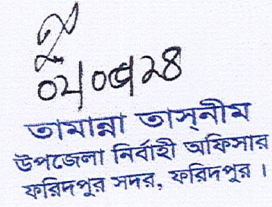 তামান্না তাসনীম
উপজেলা নির্বাহী অফিসার
ফরিদপুর সদর, ফরিদপুর ।